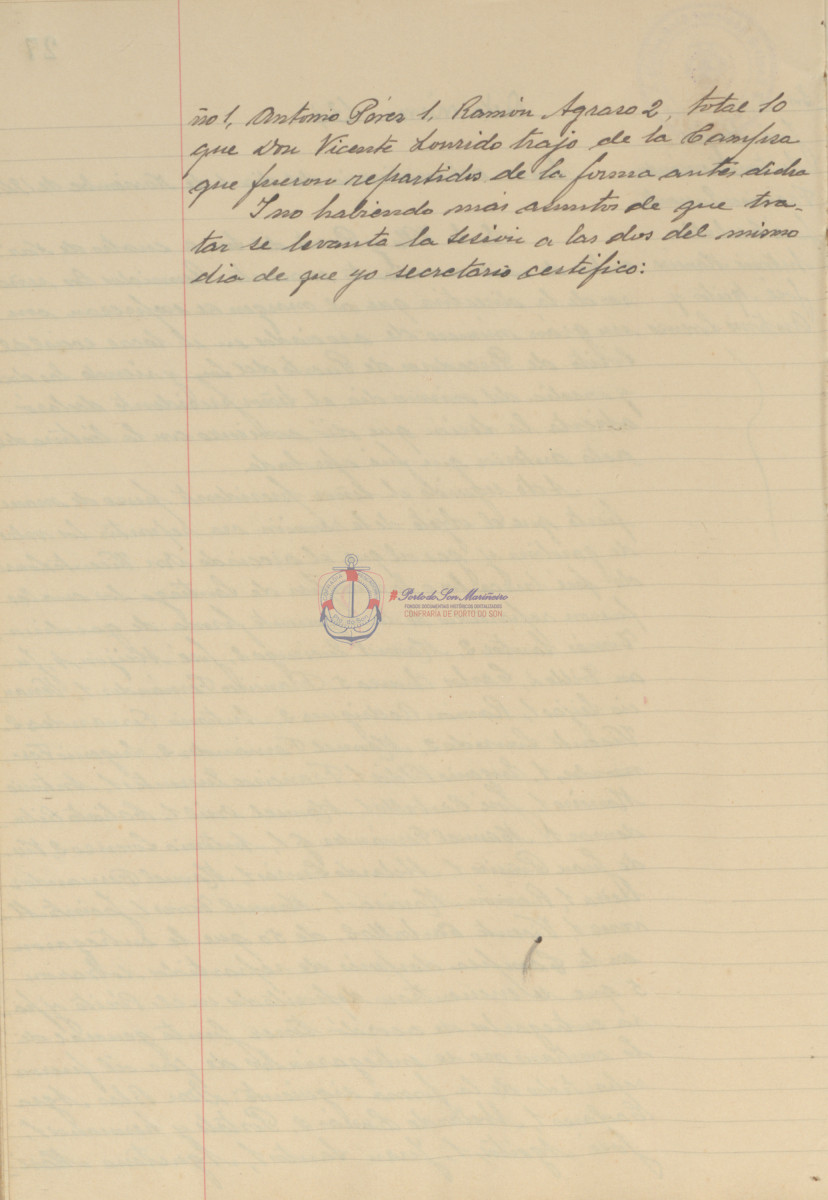 ño 1, Antonio Pérez 1, Ramón Agraso 2, total 10
que Don Vicente Lourido trajo de la Campsa
que fueron repartidos de la forma antes dicha
I no habiendo más asuntos de que tra-
tar se levanta la sesión a las dos del mismo
dia de que yo secretario certifico:
#Porto do Son Mariñeiro
FONDOS DOCUMENTAIS HISTÓRICOS DIXITALIZADOS
CONFRARÍA DE PORTO DO SON